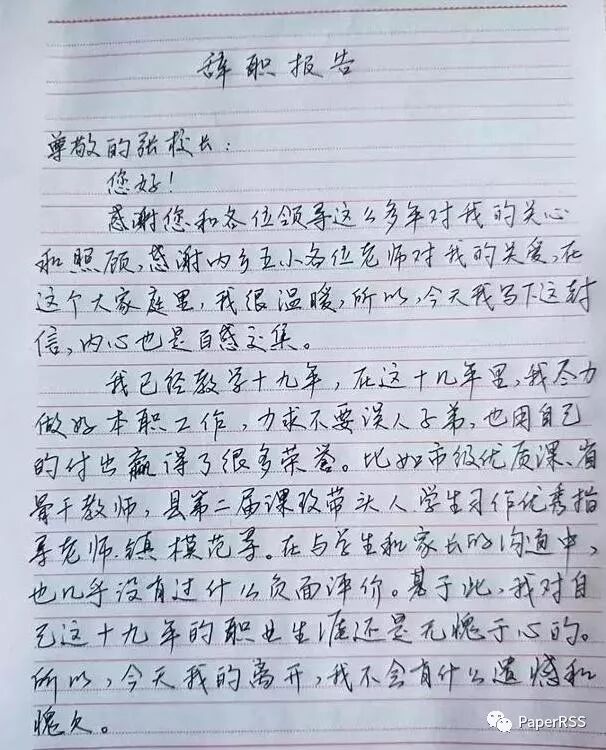 辞职报告
尊敬的张校长：
您好！
感谢您和各位领导这么多年对我的关心
和照顾，感谢内乡五小各位老师对我的关爱，在
这个大家庭里，我很温暖，所以，今天我写下这封
信，内心也是百感交集。
我已经教学十九年，在这十九年里，我尽力
做好本职工作，力求不要误人子弟，也用自己
的付出赢得了很多荣誉。比如市级优质课、省
骨干教师，县第二届课改带头人、学生习作优秀指
导老师、镇模范等。在与学生和家长的沟通中，
也几乎没有过什么负面评价。基于此，我对自
己这十九年的职业生涯还是无愧于心的。
所以，今天我的离开，我不会有什么遗憾和
愧欠。
PaperRSS